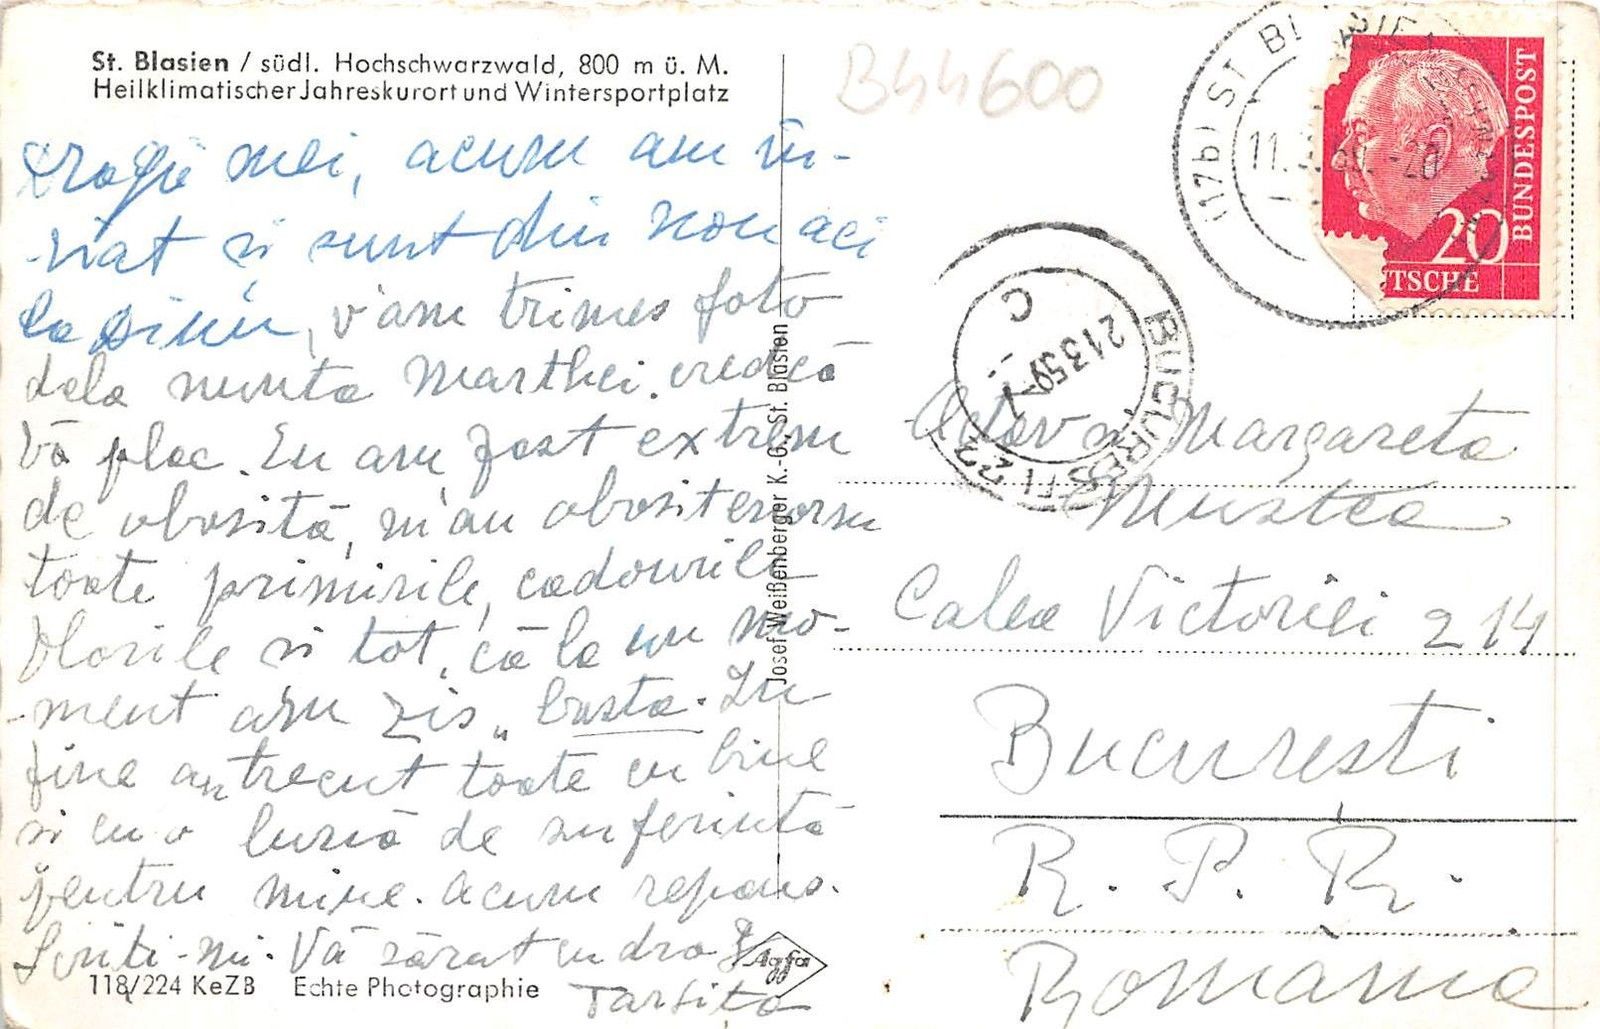 St. Blasien / südl. Hochschwarzwald, 800 m ü. M.
Heilklimatischer Jahreskurort und Wintersportplatz
B44600
Dragii mei, acum am în-
viat si sunt din nou aci
la Dinu, v'am trimes foto
dela nunta Marthei. credcă
Vă plac. Eu am fost extrem
de obosită, m'au obosit enorm
toate primirile, cadourile
florile si tot, că la un mo-
ment am zis „basta. In
fine au trecut toate cu bine
si cu o lună de suferintă
pentru mine. Acum repaus.
Scriti-mi. Vă sărut cu drag
Tarsita
118/224 KeZB Echte Photographie
Josef Weißenberger K.-G., St. Blasien
Agfa
(17b) ST BLASIEN
11. -20
DEUTSCHE
BUNDESPOST
20
BUCUREȘTI 23
21359-7
C
Margareta
Mustea
Calea Victoriei 214
Bucuresti
R. P. R.
România